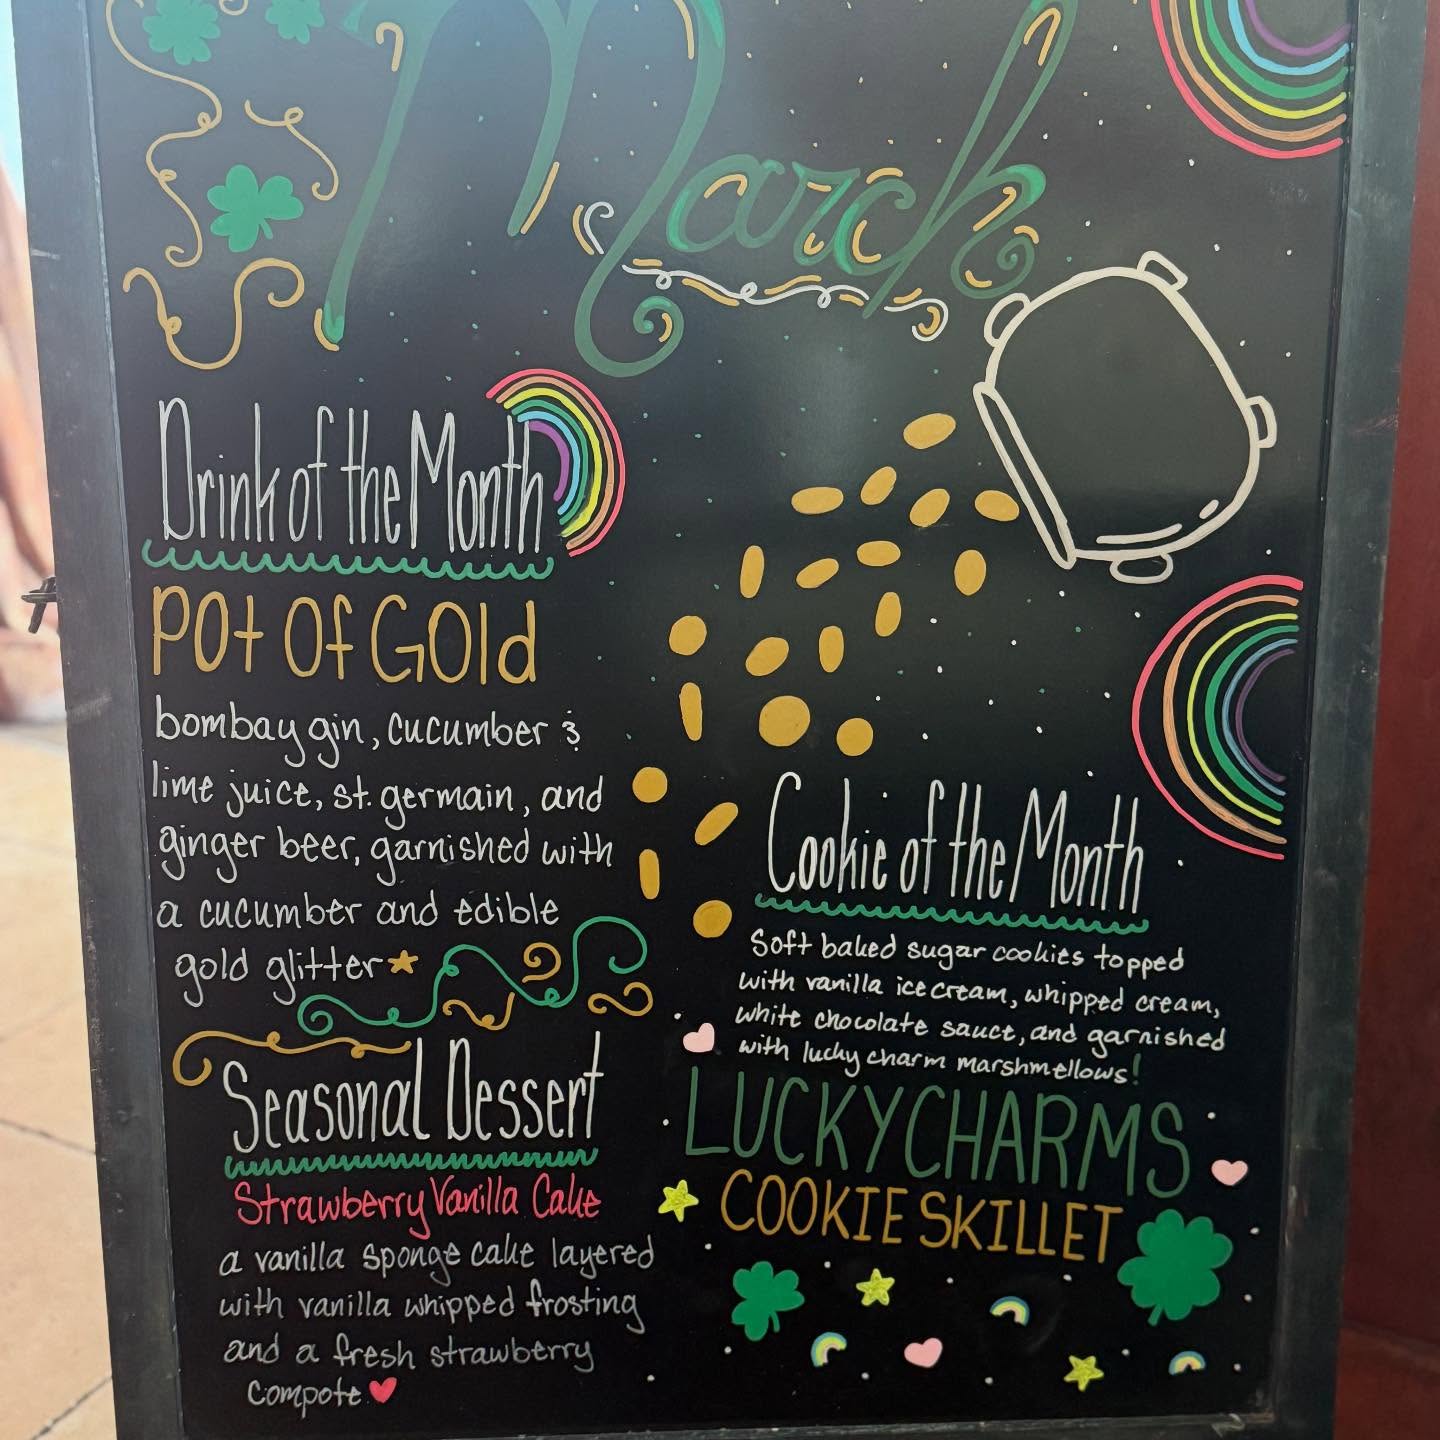 March
Drink of the Month
Pot Of Gold
bombay gin, cucumber &
lime juice, st. germain, and
ginger beer, garnished with
a cucumber and edible
gold glitter
Seasonal Dessert
Strawberry Vanilla Cake
a vanilla sponge cake layered
with vanilla whipped frosting
and a fresh strawberry
compote
Cookie of the Month
Soft baked sugar cookies topped
with vanilla ice cream, whipped cream,
white chocolate sauce, and garnished
with lucky charm marshmellows!
LUCKY CHARMS
COOKIE SKILLET